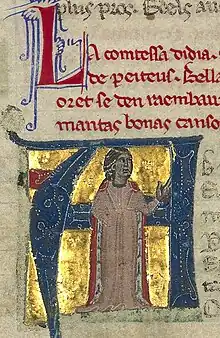 plus pros.
LA comtessa didia.
de peiteus. Bella
oret se den raembau
mantas bonas canso
A